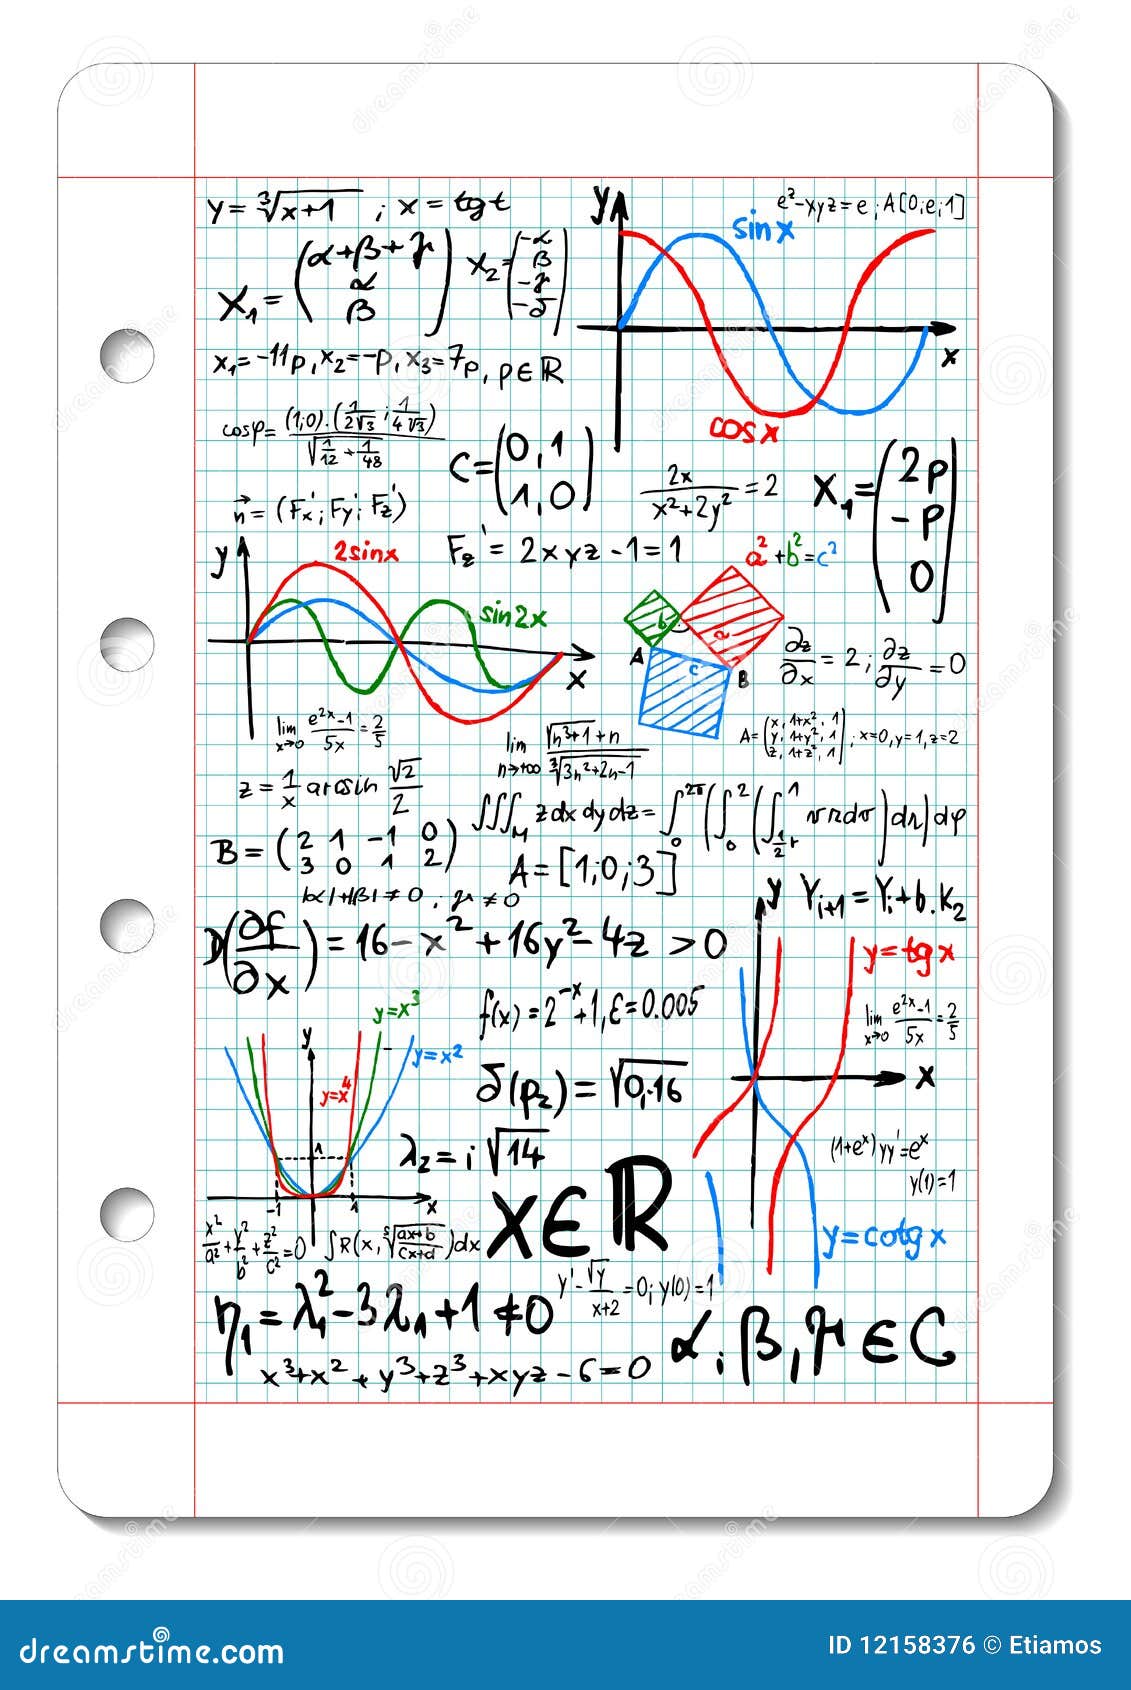 y = ∛(x+1) ; x = tgt
e²-xyz=e ; A[0;e;1]
y
sin x
x
cos x
X₁ = (α+β+γ
α
β)
X₂ = (-α
β
-γ
-δ)
x₁=-11p, x₂=-p, x₃=7p, p∈ℝ
cosφ = (1;0).(1/2√3 ; 1/4√3) / √(1/12 + 1/48)
C = (0,1
1,0)
2x/(x²+2y²) = 2
X₁ = (2p
-p
0)
n⃗ = (Fx'; Fy'; Fz')
Fz' = 2xyz-1=1
a²+b²=c²
y
2sinx
sin2x
x
b
a
c
A
B
∂z/∂x = 2 ; ∂z/∂y = 0
lim x→0 (e²ˣ-1)/5x = 2/5
lim n→+∞ (√(n³+1)+n)/∛(3n²+2n-1)
A = (x, 1+x², 1
y, 1+y², 1
z, 1+z², 1) ; x=0, y=1, z=2
z = 1/x arcsin √2/2
∭M z dx dy dz = ∫₀²π(∫₀²(∫½r¹ v r dv)dr)dφ
B = (2 1 -1 0
3 0 1 2)
A = [1;0;3]
|α|+|β|≠0 ; γ≠0
y
Yᵢ₊₁ = Yᵢ+b.K₂
D(∂f/∂x) = 16-x²+16y²-4z > 0
y=tgx
f(x)=2⁻ˣ+1, ε=0.005
lim x→0 (e²ˣ-1)/5x = 2/5
y=x³
y
y=x²
y=x⁴
δ(p₂) = √0,16
x
1
λ₂ = i√14
(1+eˣ)yy'=eˣ
y(1)=1
-1
1
x
X∈ℝ
y=cotgx
x²/a²+y²/b²+z²/c²=0
∫R(x, ⁵√((ax+b)/(cx+d)))dx
y'-√y/(x+2)=0; y(0)=1
η₁ = λ₁²-3λ₁+1≠0
α, β, γ ∈ C
x³+x²+y³+z³+xyz-6=0
dreamstime.com
ID 12158376 © Etiamos